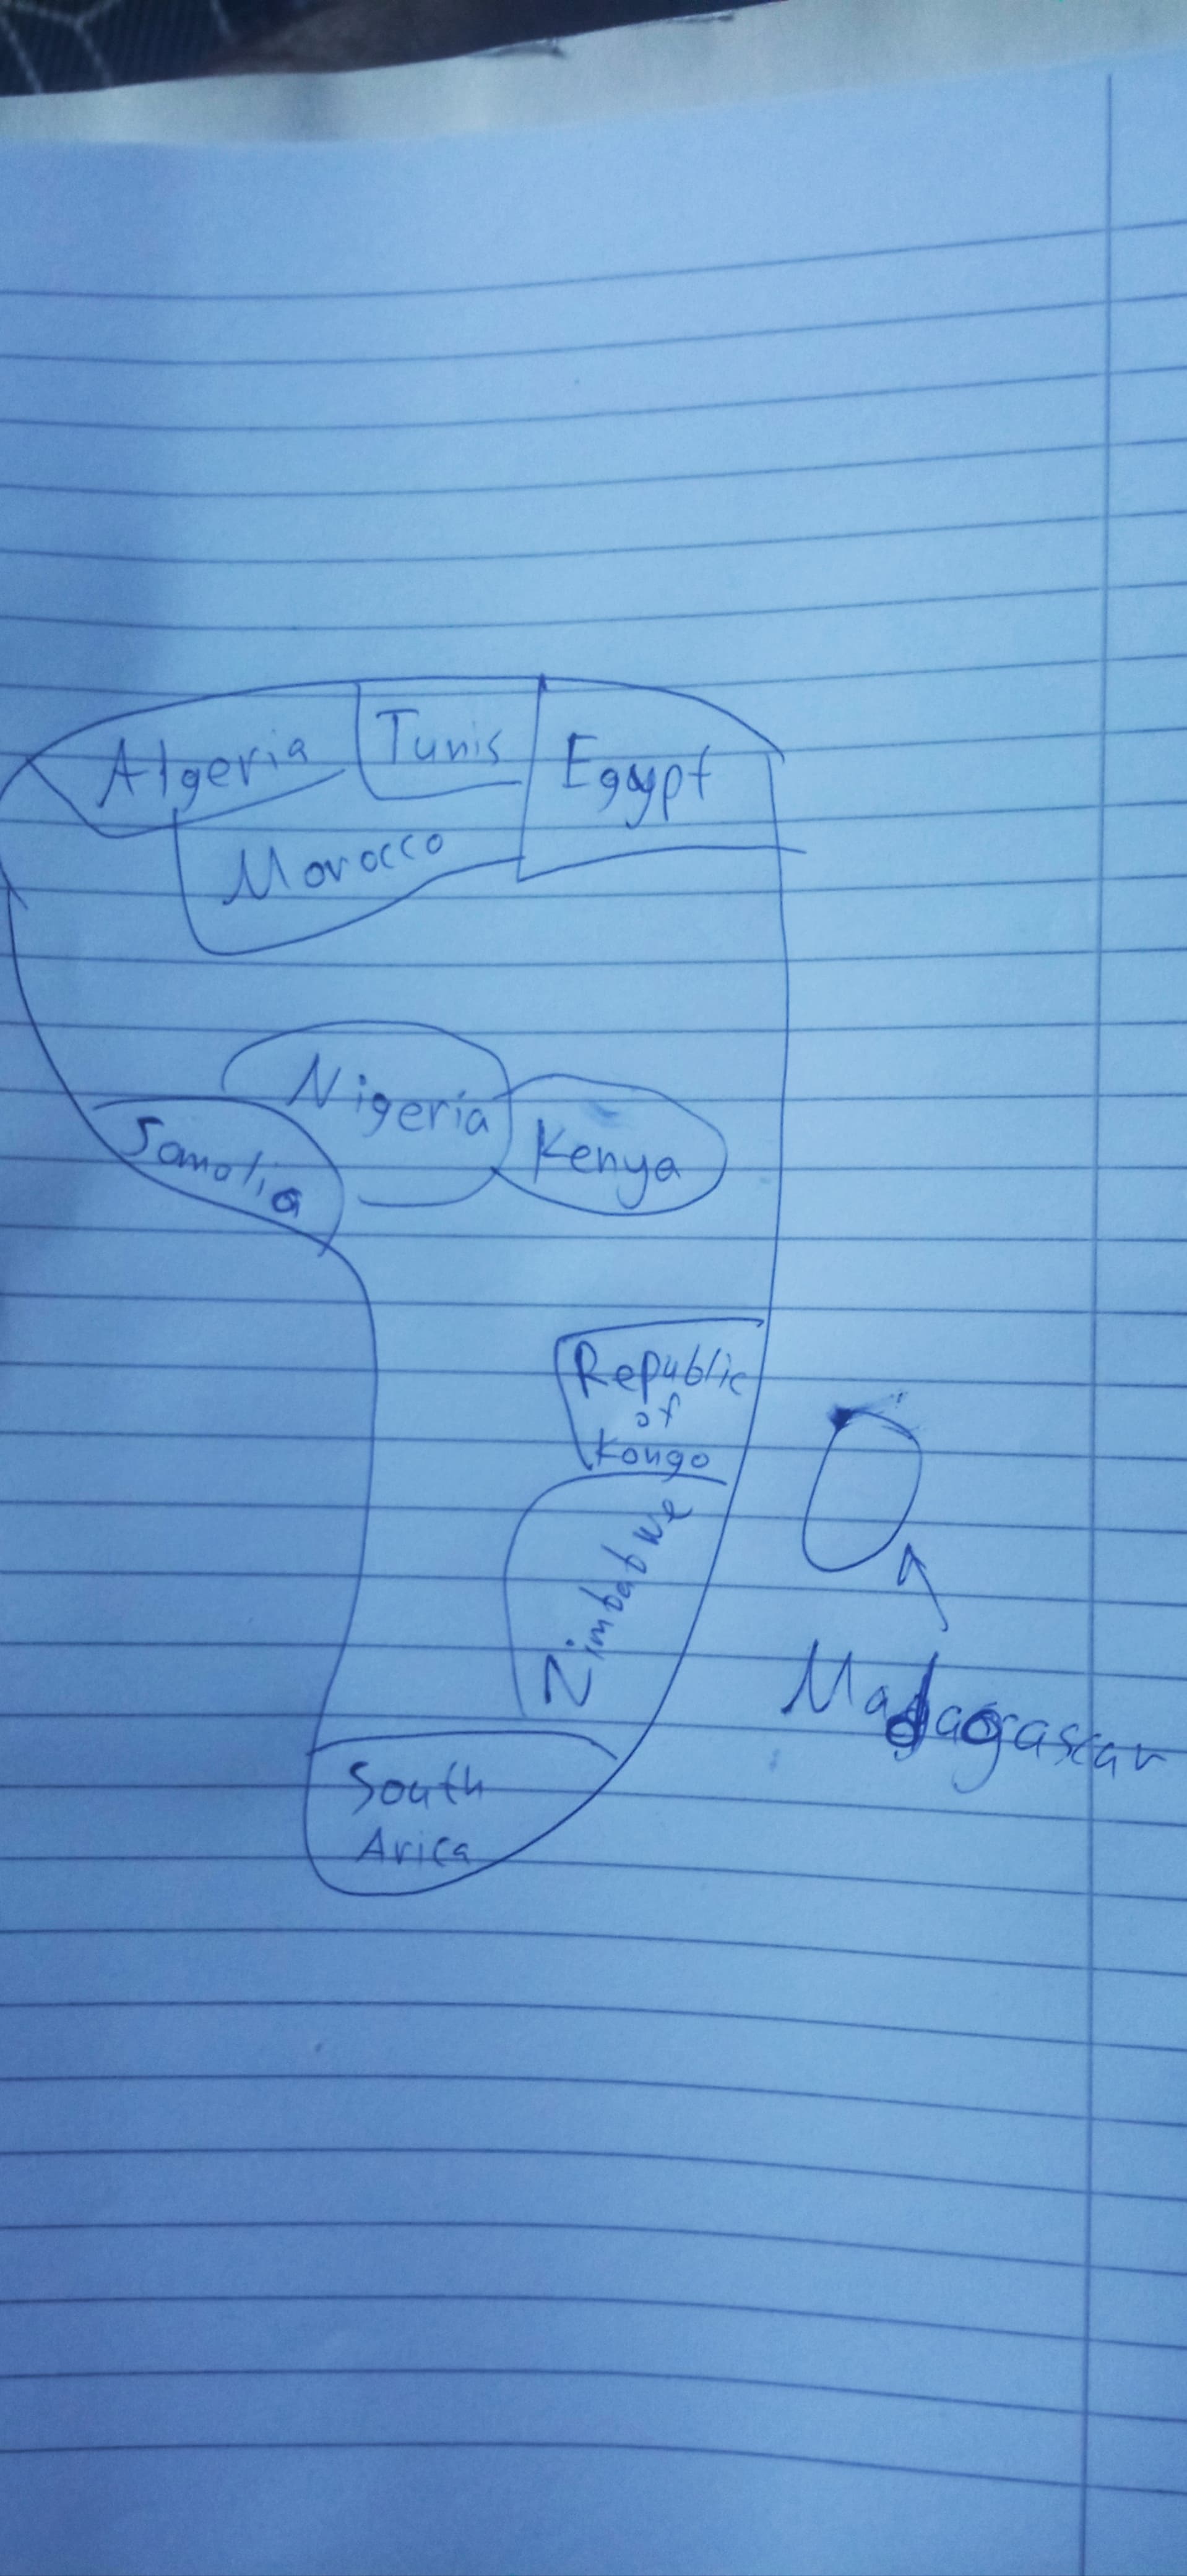 Algeria
Tunis
Egypt
Morocco
Nigeria
Kenya
Somalia
Republic
of
Kongo
Zimbabwe
Madagascar
South
Arica